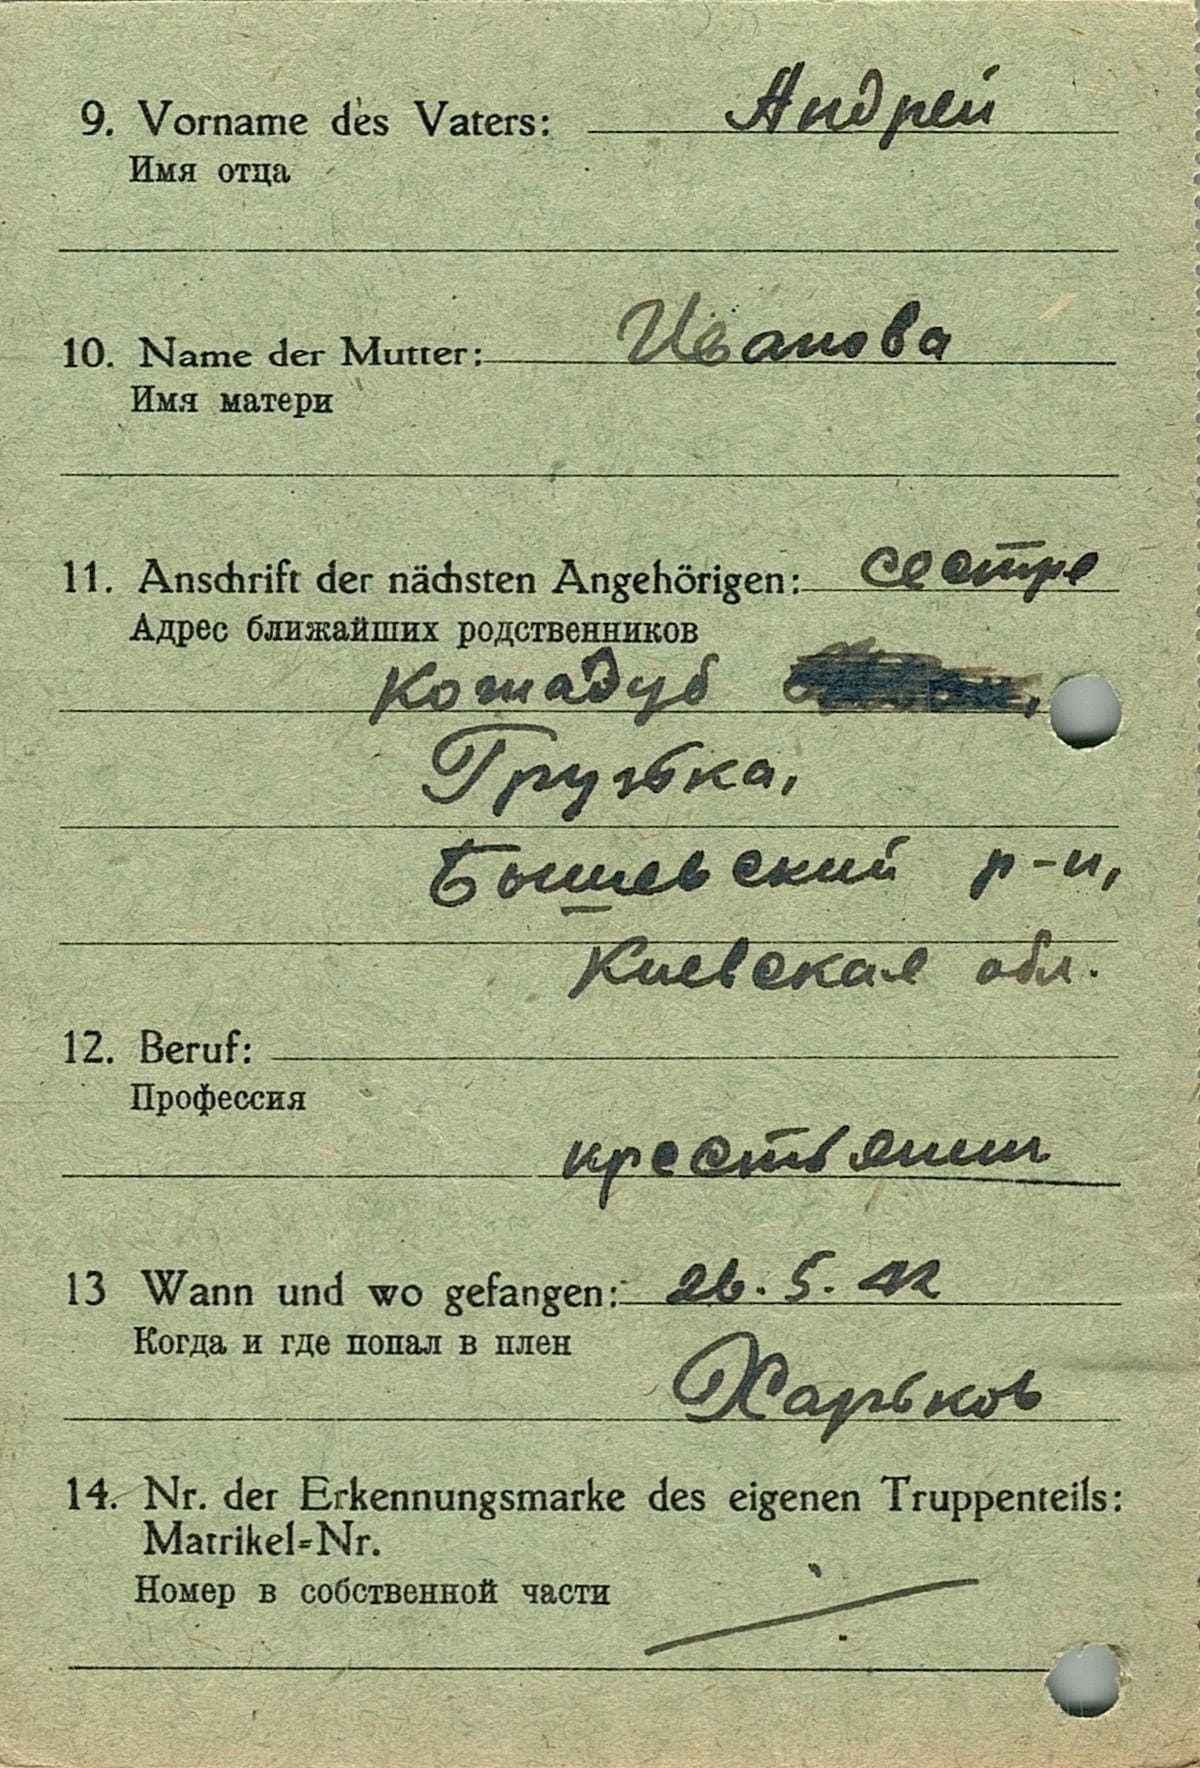 9. Vorname des Vaters: Андрей
Имя отца
10. Name der Mutter: Иванова
Имя матери
11. Anschrift der nächsten Angehörigen: сестре
Адрес ближайших родственников
Кошадуб
Грузька,
Бышевский р-н,
Киевская обл.
12. Beruf:
Профессия
крестьянин
13 Wann und wo gefangen: 26. 5. 42
Когда и где попал в плен
Харьков
14. Nr. der Erkennungsmarke des eigenen Truppenteils:
Matrikel-Nr.
Номер в собственной части